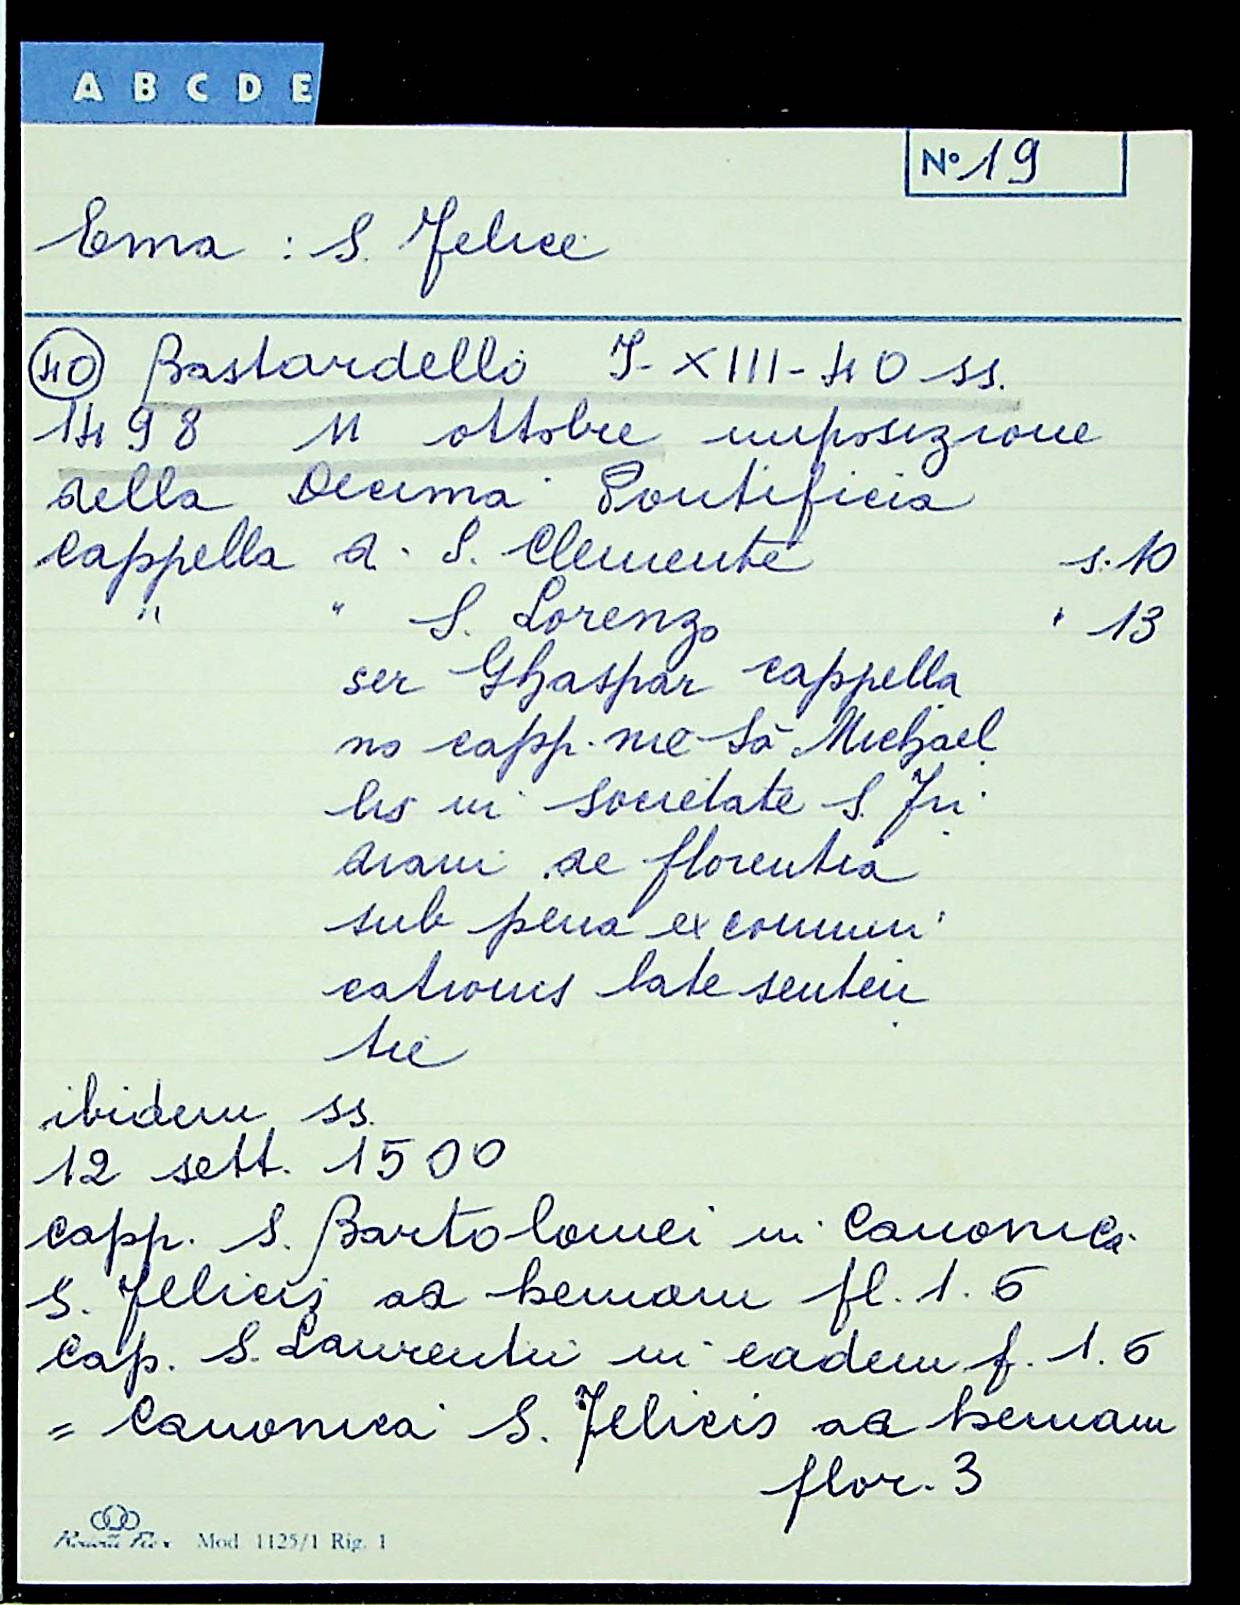 A B C D E
N° 19
Ema : S. Felice
40 Bastardello I-XIII-40 ss.
1498 11 ottobre imposizione
della Decima Pontificia
Cappella d. S. Clemente s. 10
" " S. Lorenzo " 13
ser Ghaspar cappella
no capp. nie Sā Michael
lis in societate S. Fri
diani de florentia
sub pena excomuni
cationis late senten
tie
ibidem ss.
12 sett. 1500
capp. S. Bartolomei in Canonica
S. Felicis ad hemam fl. 1. 6
Cap. S. Laurentii in eadem f. 1. 6
= Canonica S. Felicis ad hemam
flor. 3
Mod 1125/1 Rig. 1